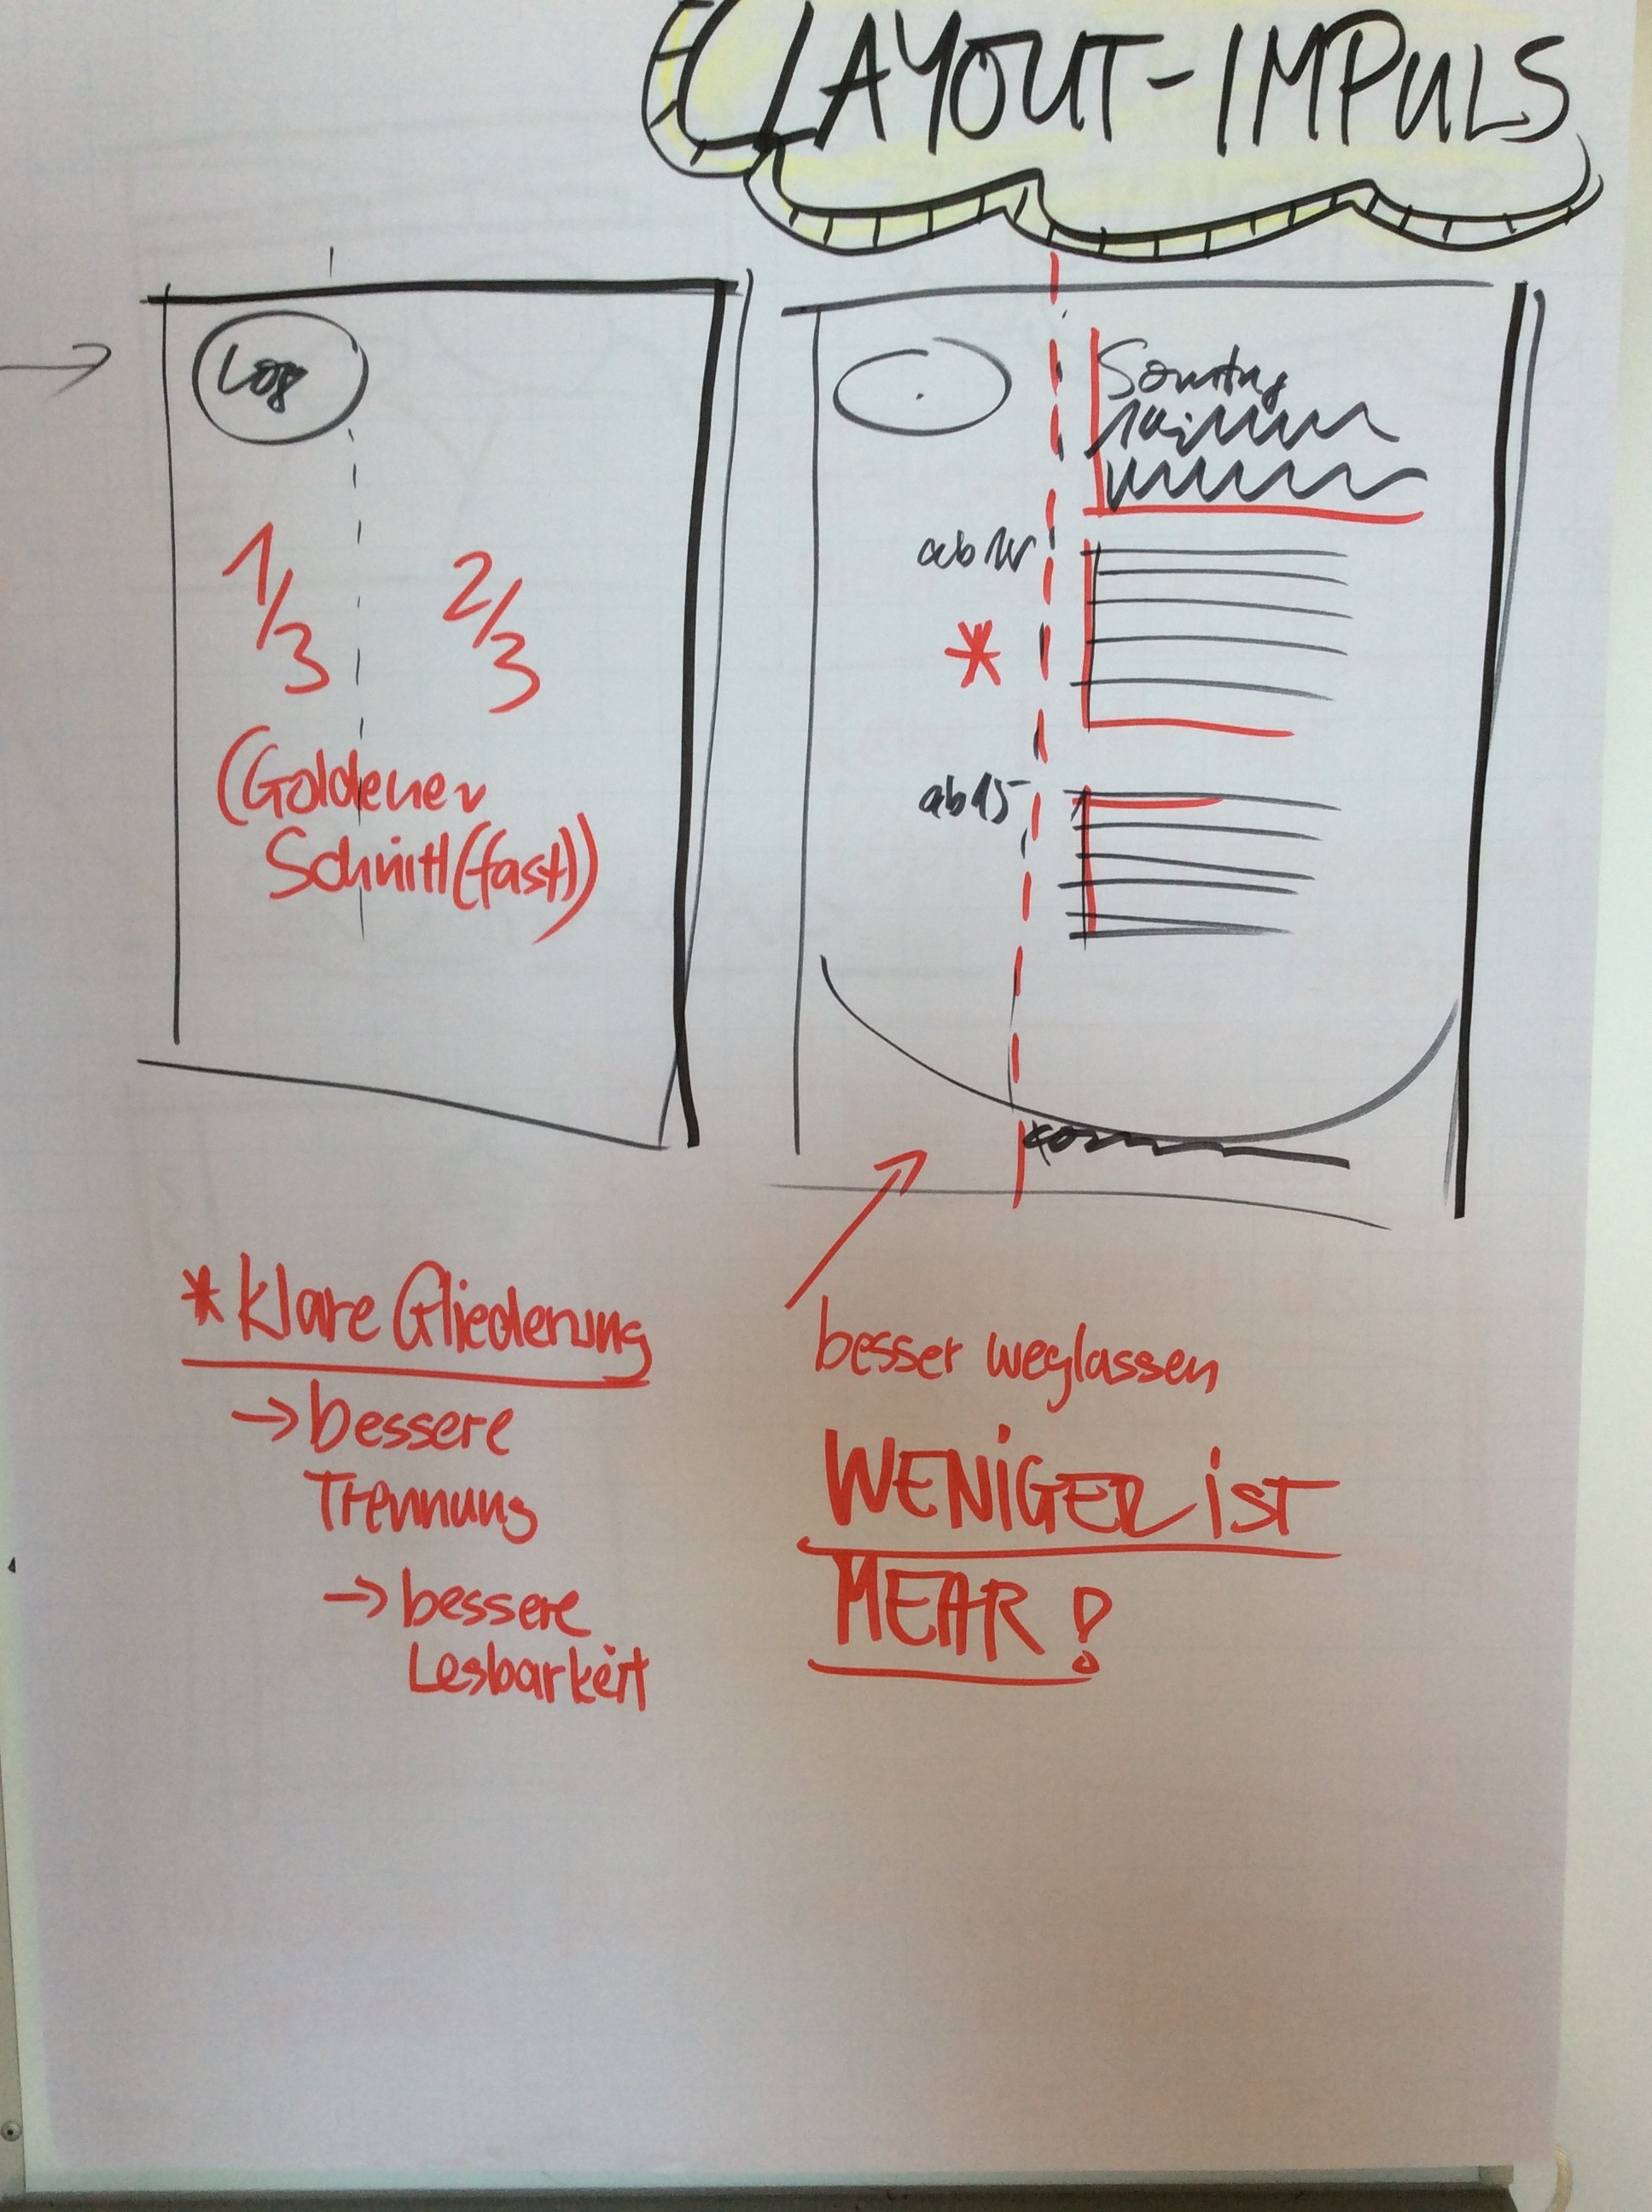 LAYOUT-IMPULS
Log
1/3
2/3
(Goldener
Schnitt (fast))
Sonntag
ab 14
*
ab 15
* klare Gliederung
→ bessere
Trennung
→ bessere
Lesbarkeit
besser weglassen
WENIGER iST
MEHR!